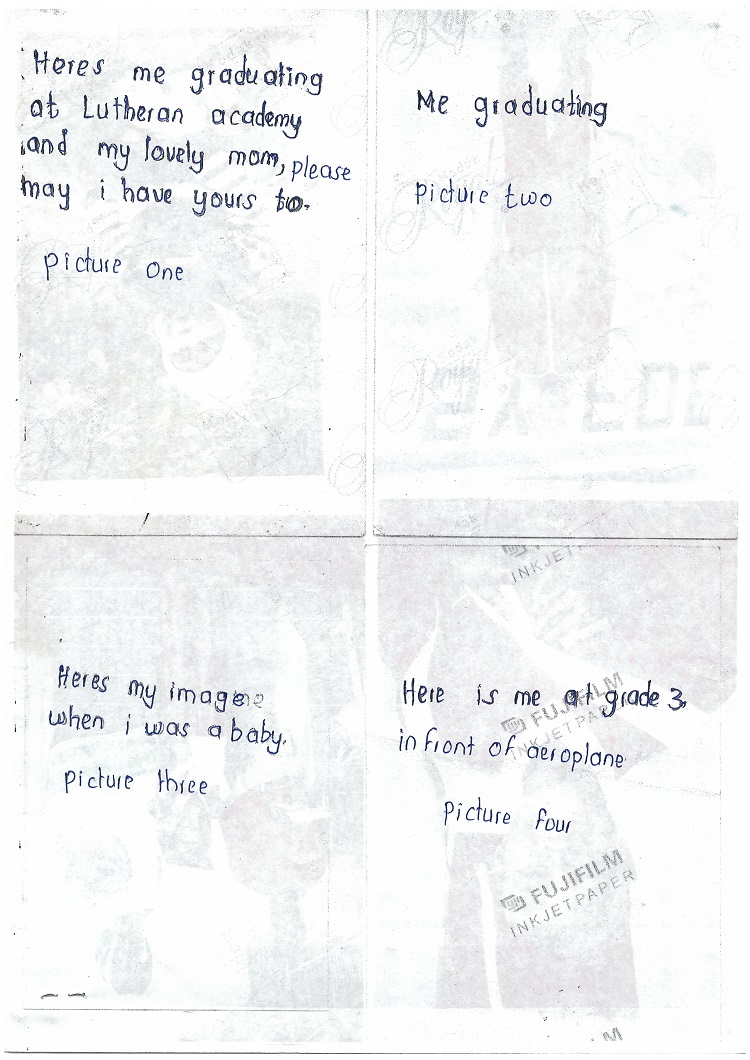 Heres me graduating
at Lutheran academy
and my lovely mom, please
may i have yours to.
picture one
Me graduating
picture two
Heres my image
when i was a baby.
picture three
Here is me at grade 3,
in front of aeroplane
picture four
INKJET
FUJIFILM
INKJETPAPER
FUJIFILM
INKJETPAPER